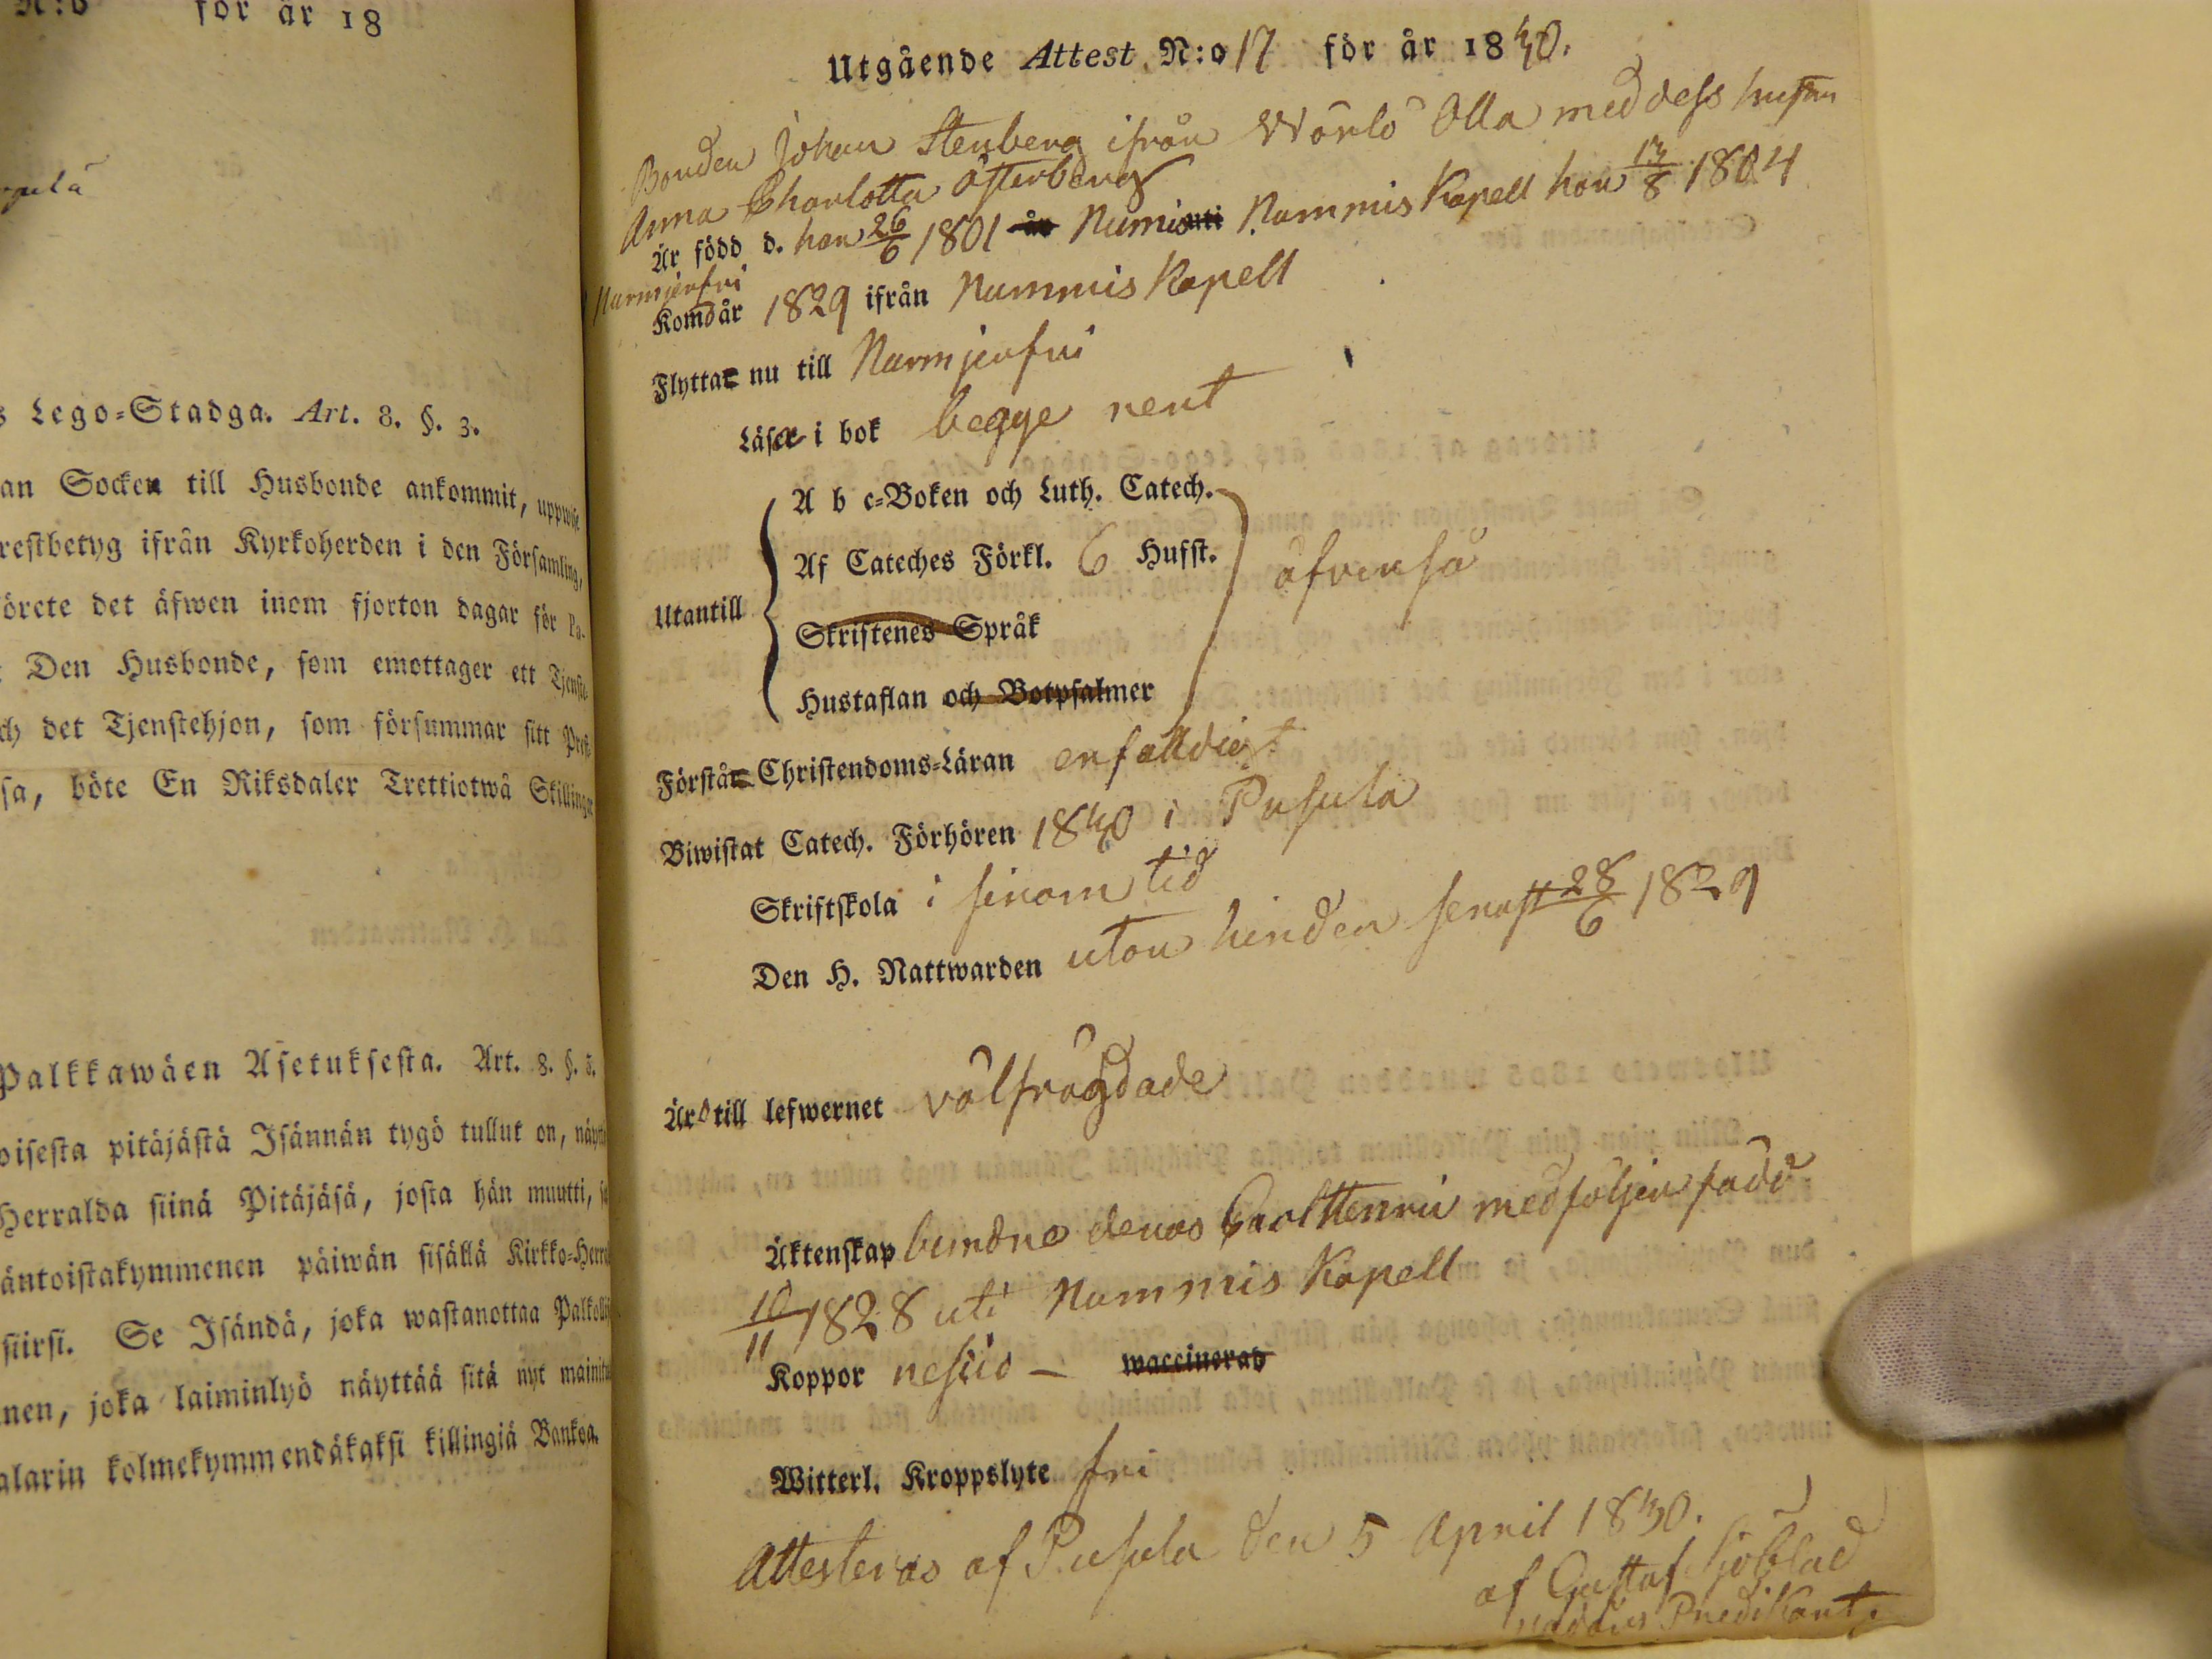 N:o för år 18
s Lego-Stadga. Art. 8. §. 3.
an Socken till Husbonde ankommit, uppwise
restbetyg ifrån Kyrkoherden i den Församling,
örete det äfwen inom fjorton dagar för Pa-
: Den Husbonde, som emottager ett Tjenste-
ch det Tjenstehjon, som försummar sitt Prest-
sa, böte En Riksdaler Trettiotwå Skillingar
Palkkawäen Asetuksesta. Art. 8. §. 3.
oisesta pitäjästä Isännän tygö tullut on, näyt
Herralda siinä Pitäjäsä, josta hän muutti,
äntoistakymmenen päiwän sisällä Kirkko-Herra
siirsi. Se Isändä, joka wastanottaa Palkolli
nen, joka laiminlyö näyttää sitä nyt mainitu
alarin kolmekymmendäkaksi killingiä Bankoa.
Utgående Attest N:o 17 för år 1830.
Bonden Johan Stenberg ifrån Wörlö Olla med dess hustru
Anna Charlotta Österberg
Är född d. han 26/6 1801 Nummis Kapell hon 13/8 1804
Nurmijerfvi
Kom år 1829 ifrån Nummis Kapell
Flyttar nu till Nurmijerfvi
Läser i bok begge rent
Utantill
A b c-Boken och Luth. Catech.
Af Cateches Förkl. 6 Hufst. äfvenså
Skriftenes Språk
Hustaflan och Botpsalmer
Förstår Christendoms-Läran enfalldigt
Biwistat Catech. Förhören 1830 i Pusula
Skriftskola i sinom tid
Den H. Nattwarden utan hinder senast 28/6 1829
Är till lefwernet välfrägdade
Äktenskap bundne deras Carl Henric medföljer född
10/11 1828 uti Nummis Kapell
Koppor - waccinerad
Witterl. Kroppslyte fri
Attesteras af Pusula den 5 April 1830.
af Gustaf Sjöblad
Predikant.